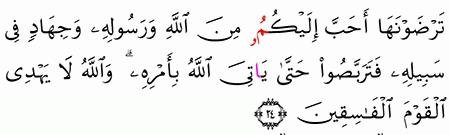 تَرْضَوْنَهَا أَحَبَّ إِلَيْكُمُۥ مِنَ ٱللَّهِ وَرَسُولِهِۦ وَجِهَادٖ فِى
سَبِيلِهِۦ فَتَرَبَّصُواْ حَتَّىٰ يَاتِىَ ٱللَّهُ بِأَمْرِهِۦۗ وَٱللَّهُ لَا يَهْدِى
ٱلْقَوْمَ ٱلْفَٰسِقِينَ ٢٤